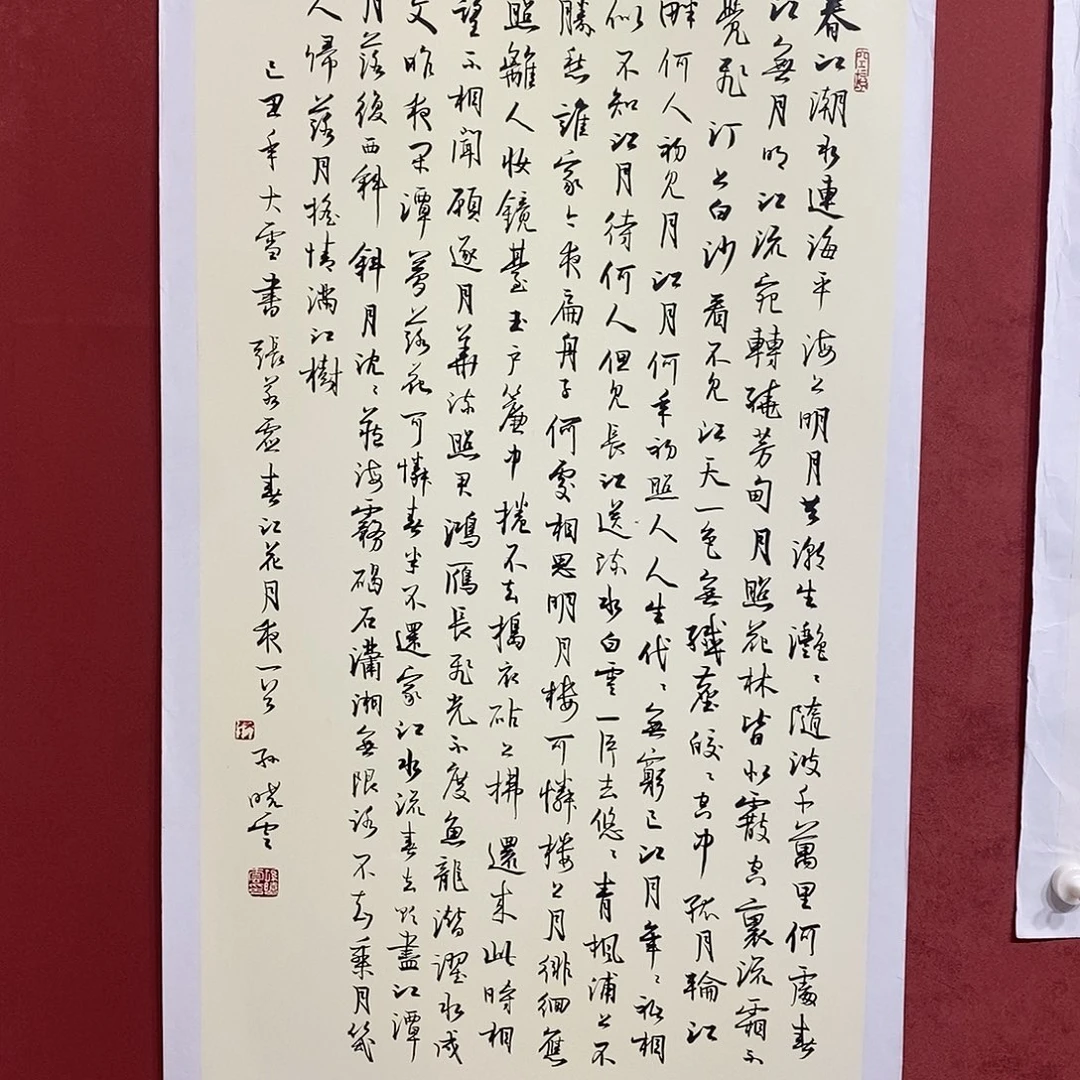 春江潮水連海平海上明月共潮生灔〻隨波千萬里何處春
江無月明江流宛轉繞芳甸月照花林皆似霰空裏流霜不
覺飛汀上白沙看不見江天一色無纖塵皎〻空中孤月輪江
畔何人初見月江月何年初照人人生代〻無窮已江月年〻祇相
似不知江月待何人但見長江送流水白雲一片去悠〻青楓浦上不
勝愁誰家今夜扁舟子何處相思明月樓可憐樓上月徘徊應
照離人妝鏡臺玉戶簾中捲不去搗衣砧上拂還來此時相
望不相聞願逐月華流照君鴻雁長飛光不度魚龍潛躍水成
文昨夜閑潭夢落花可憐春半不還家江水流春去欲盡江潭
月落復西斜斜月沈〻藏海霧碣石瀟湘無限路不知乘月幾
人歸落月搖情滿江樹
己丑年大雪書張若虛春江花月夜一首
孫曉雲